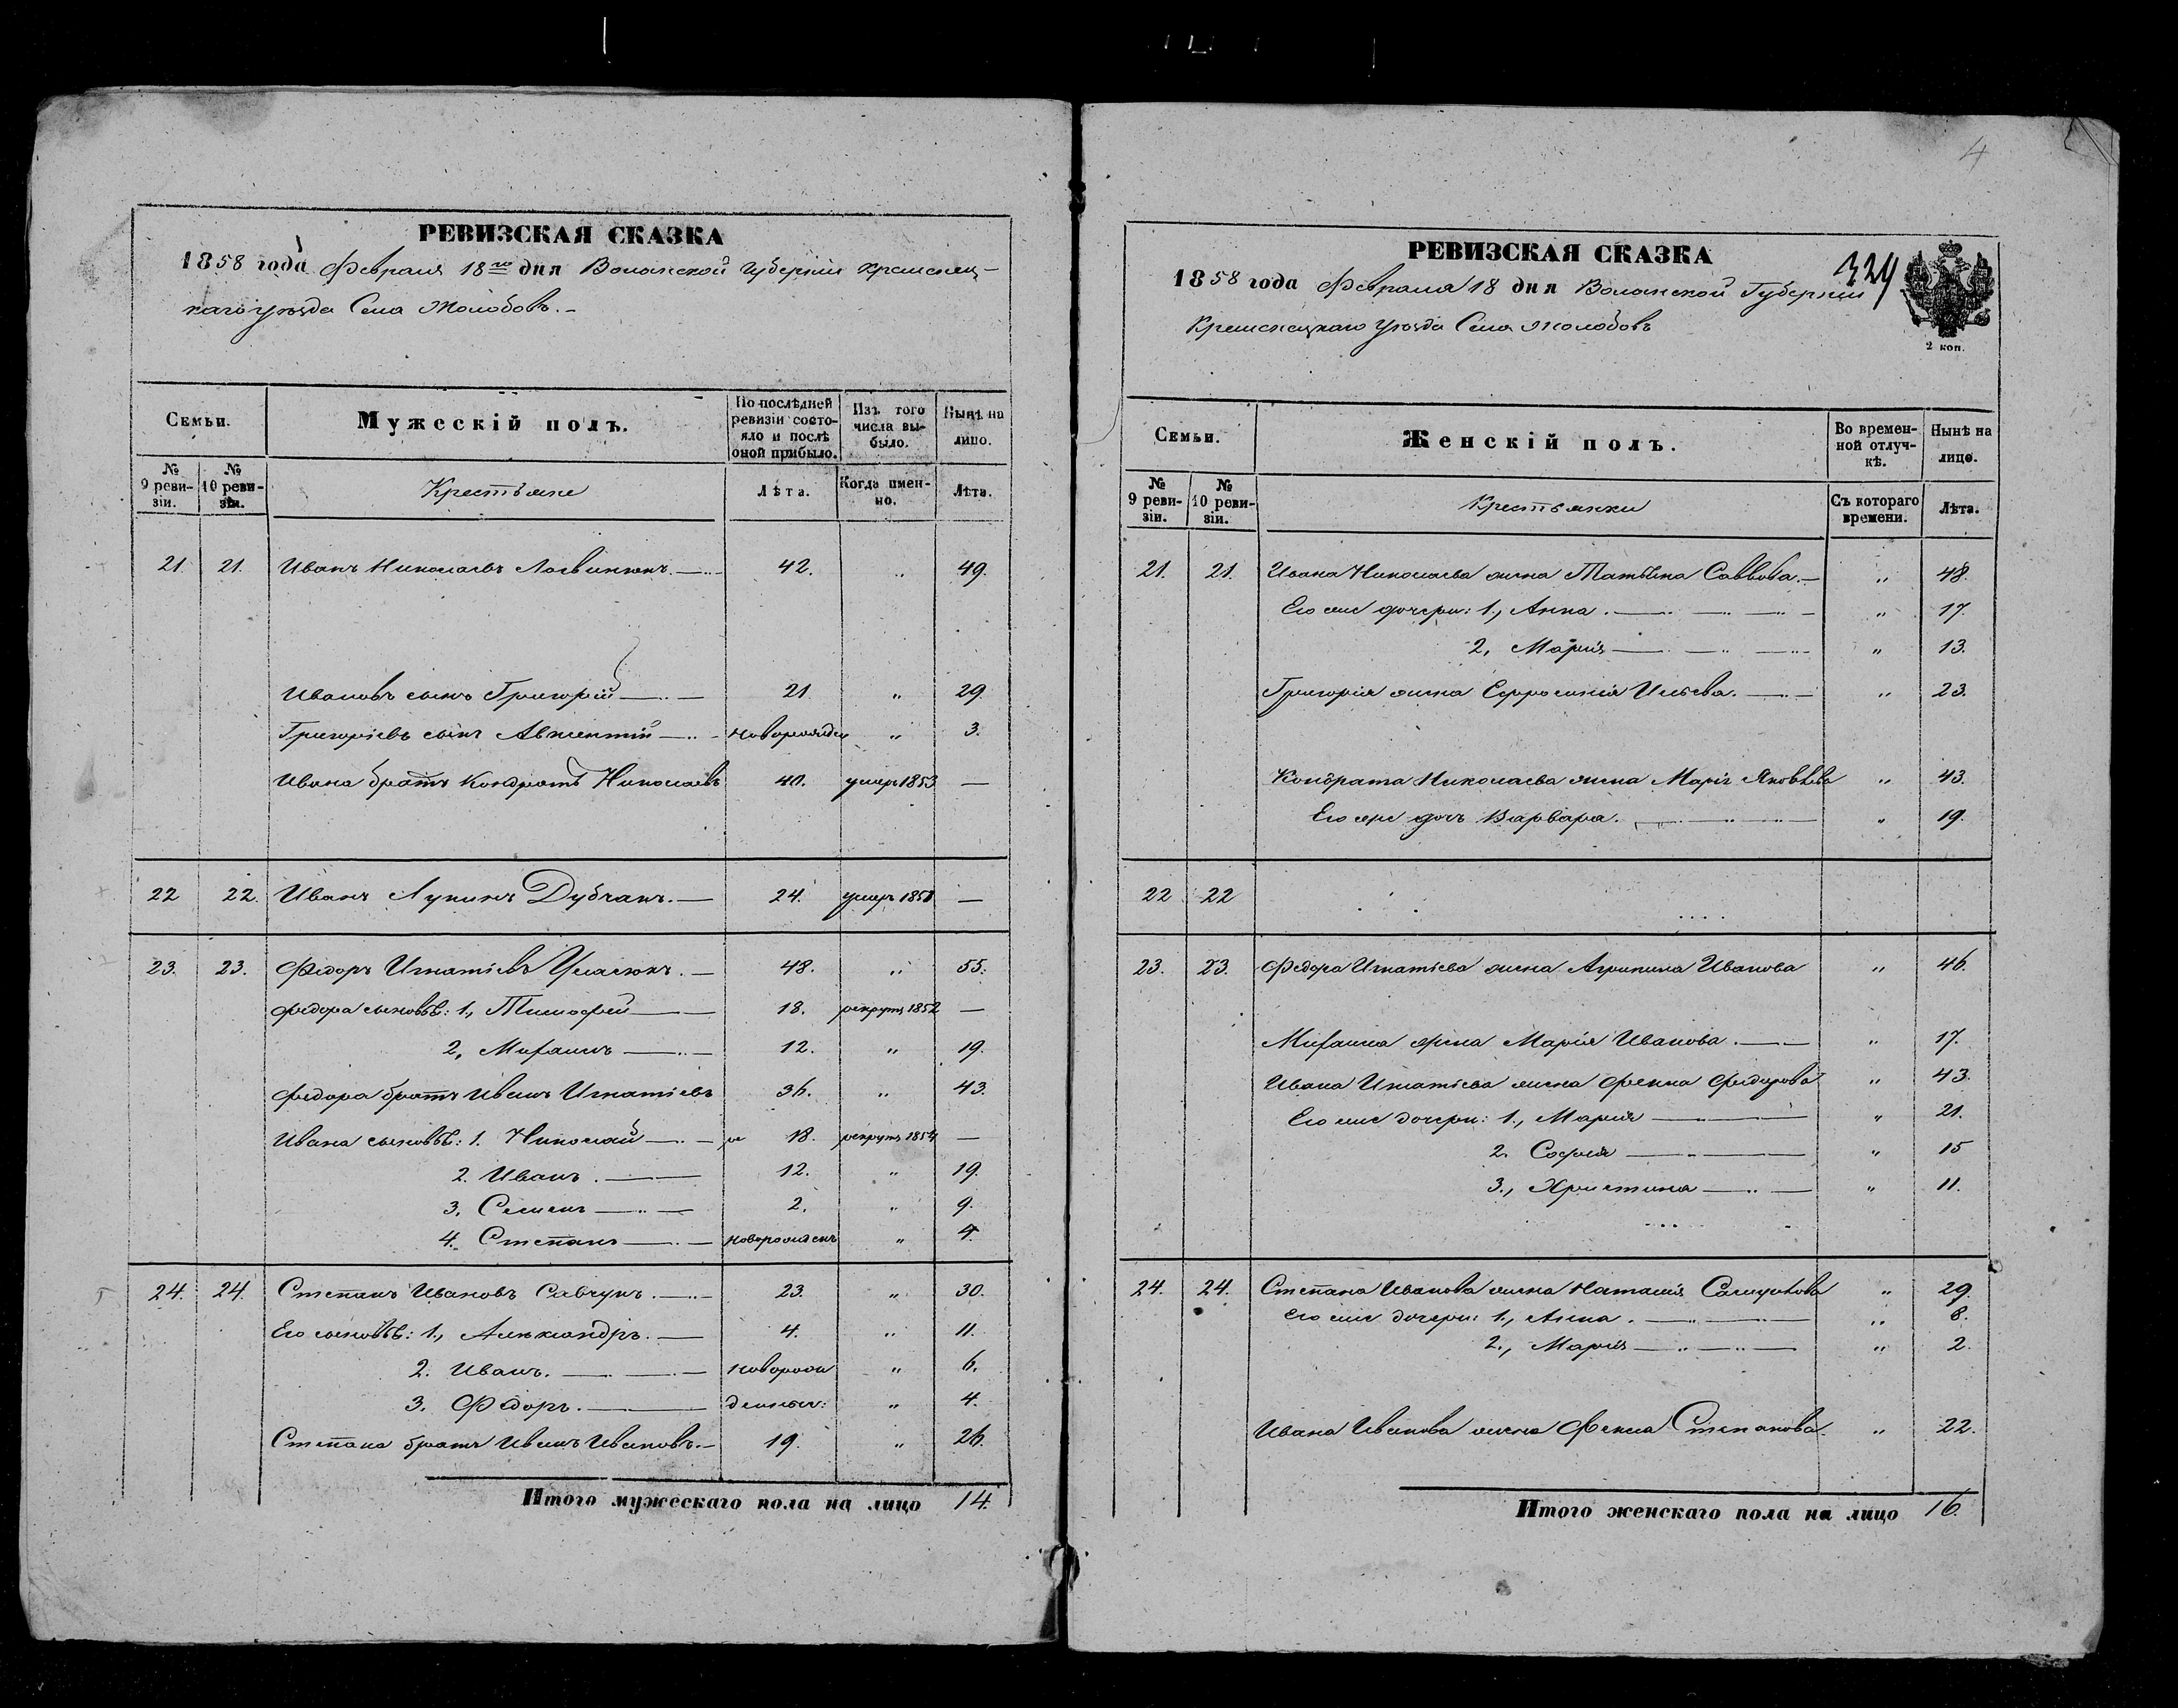 РЕВИЗСКАЯ СКАЗКА
1858 года Февраля 18го дня Волынской губернiи Кременец-
каго уѣзда Села Жолобовъ.-
Семьи.
Мужескій полъ.
По послѣдней ревизіи состо-яло и послѣ оной прибыло.
Изъ того числа вы-было.
Нынѣ на лицо.
№ 9 реви-зіи.
№ 10 реви-зіи.
Крестьяне
Лѣта.
Когда имен-но.
Лѣта.
21. 21. Иванъ Николаевъ Логвинюкъ. 42. „ 49.
Ивановъ сынъ Григорій 21 „ 29.
Григоріевъ сынъ Авксентій новорожден „ 3.
Ивана братъ Кондратъ Николаевъ 40. умеръ 1853 —
22 22. Иванъ Лукинъ Дубчакъ. 24. умеръ —
23. 23. Федоръ Игнатіевъ 48. „ 55.
Федора сыновья: 1., Тимофей 18. рекрутъ 1852 —
2, Михаилъ 12. „ 19.
Федора братъ Иванъ Игнатіевъ 36. „ 43.
Ивана сыновья: 1. Николай 18. рекрутъ 1854 —
2. Иванъ. 12. „ 19.
3. Семенъ 2. „ 9.
4. Степанъ новорожденъ „ 4.
24. 24. Степанъ Ивановъ Савчукъ. 23. „ 30.
Его сыновья: 1., Александръ. 4. „ 11.
2. Иванъ. новорож „ 6.
3. Федоръ. денные: „ 4.
Степана братъ Иванъ Ивановъ. 19. „ 26.
Итого мужескаго пола на лицо 14.
4
РЕВИЗСКАЯ СКАЗКА
324
1858 года Февраля 18 дня Волынской Губерніи
Кременецкаго уѣзда Села Жолобовъ
2 коп.
Семьи.
Женскій полъ.
Во времен-ной отлуч-кѣ.
Нынѣ на лицо.
№ 9 реви-зіи.
№ 10 реви-зіи.
Крестьянки
Съ котораго времени.
Лѣта.
21. 21. Ивана Николаева жена Татьяна Саввова. „ 48.
Его же дочери: 1., Анна. „ 17.
2, Марія „ 13.
Григорія жена Ефросинія Ильева. „ 23.
Кондрата Николаева жена Марія Яковлева „ 43.
Его же дочь Варвара. „ 19.
22 22
23. 23. Федора Игнатіева жена Агрипина Иванова „ 46.
Михаила жена Марія Иванова. „ 17.
Ивана Игнатіева жена Фенна Федорова „ 43.
Его же дочери: 1., Марія „ 21.
2. Софія „ 15
3., Христина „ 11.
24. 24. Степана Иванова жена Наталія Самуилова „ 29.
Его же дочери: 1., Анна. „ 8.
2., Марія „ 2.
Ивана Иванова жена Фенна Степанова. „ 22.
Итого женскаго пола на лицо 16.